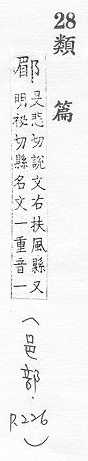 28
類篇
郿
旻悲切說文右扶風縣又
明祕切縣名文一重音一
(邑部. P.226)